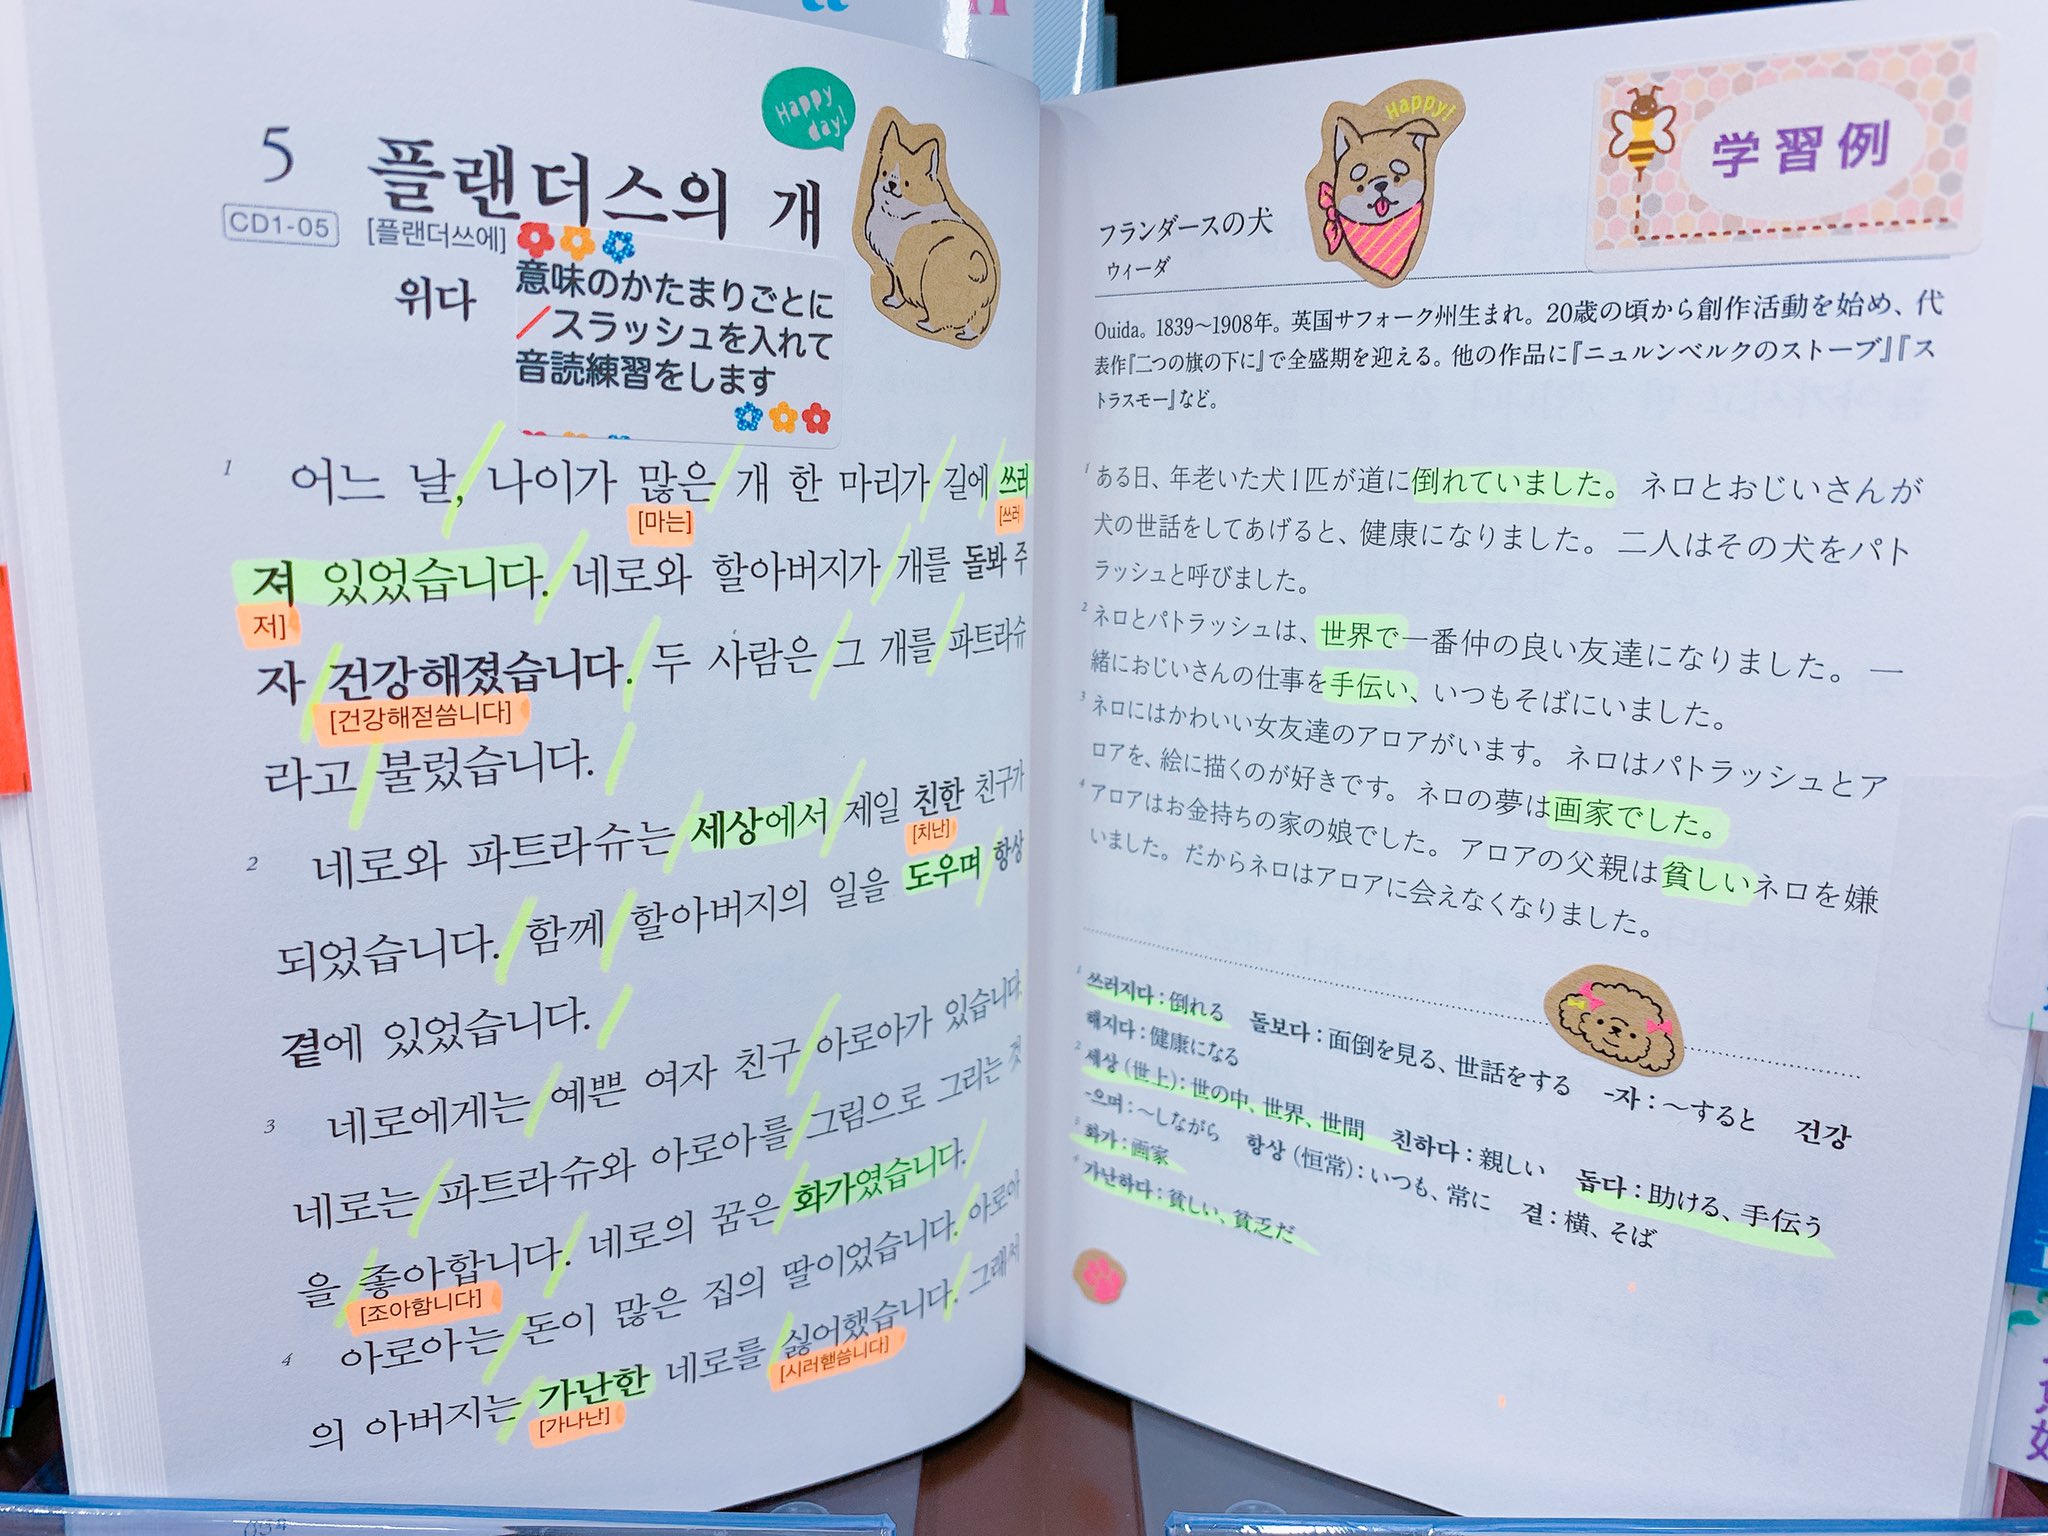 5 플랜더스의 개
CD1-05 [플랜더쓰에]
위다
Happy day!
意味のかたまりごとに
/スラッシュを入れて
音読練習をします
1 어느 날, 나이가 많은 개 한 마리가 길에 쓰러
[마는] [쓰러
져 있었습니다. 네로와 할아버지가 개를 돌봐 주
저]
자 건강해졌습니다. 두 사람은 그 개를 파트라슈
[건강해젇씀니다]
라고 불렀습니다.
2 네로와 파트라슈는 세상에서 제일 친한 친구가
[치난]
되었습니다. 함께 할아버지의 일을 도우며 항상
곁에 있었습니다.
3 네로에게는 예쁜 여자 친구 아로아가 있습니다.
네로는 파트라슈와 아로아를 그림으로 그리는 것
을 좋아합니다. 네로의 꿈은 화가였습니다.
[조아함니다]
4 아로아는 돈이 많은 집의 딸이었습니다. 아로아
의 아버지는 가난한 네로를 싫어했습니다. 그래서
[가나난] [시러핻씀니다]
034
Happy!
学習例
フランダースの犬
ウィーダ
Ouida。1839〜1908年。英国サフォーク州生まれ。20歳の頃から創作活動を始め、代
表作『二つの旗の下に』で全盛期を迎える。他の作品に『ニュルンベルクのストーブ』『ス
トラスモー』など。
1 ある日、年老いた犬1匹が道に倒れていました。ネロとおじいさんが
犬の世話をしてあげると、健康になりました。二人はその犬をパト
ラッシュと呼びました。
2 ネロとパトラッシュは、世界で一番仲の良い友達になりました。一
緒におじいさんの仕事を手伝い、いつもそばにいました。
3 ネロにはかわいい女友達のアロアがいます。ネロはパトラッシュとア
ロアを、絵に描くのが好きです。ネロの夢は画家でした。
4 アロアはお金持ちの家の娘でした。アロアの父親は貧しいネロを嫌
いました。だからネロはアロアに会えなくなりました。
1 쓰러지다:倒れる 돌보다:面倒を見る、世話をする -자:〜すると 건강
해지다:健康になる
2 세상(世上):世の中、世界、世間 친하다:親しい 돕다:助ける、手伝う
-으며:〜しながら 항상(恒常):いつも、常に 곁:横、そば
3 화가:画家
4 가난하다:貧しい、貧乏だ